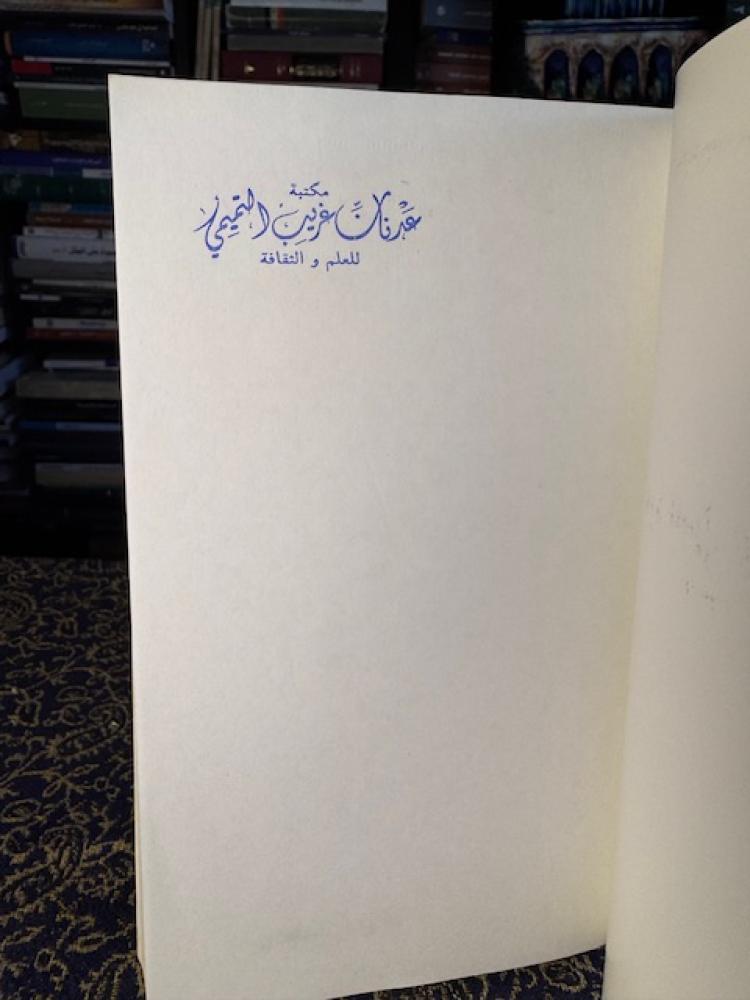 مكتبة
عَدنان غريب التميمي
للعلم و الثقافة